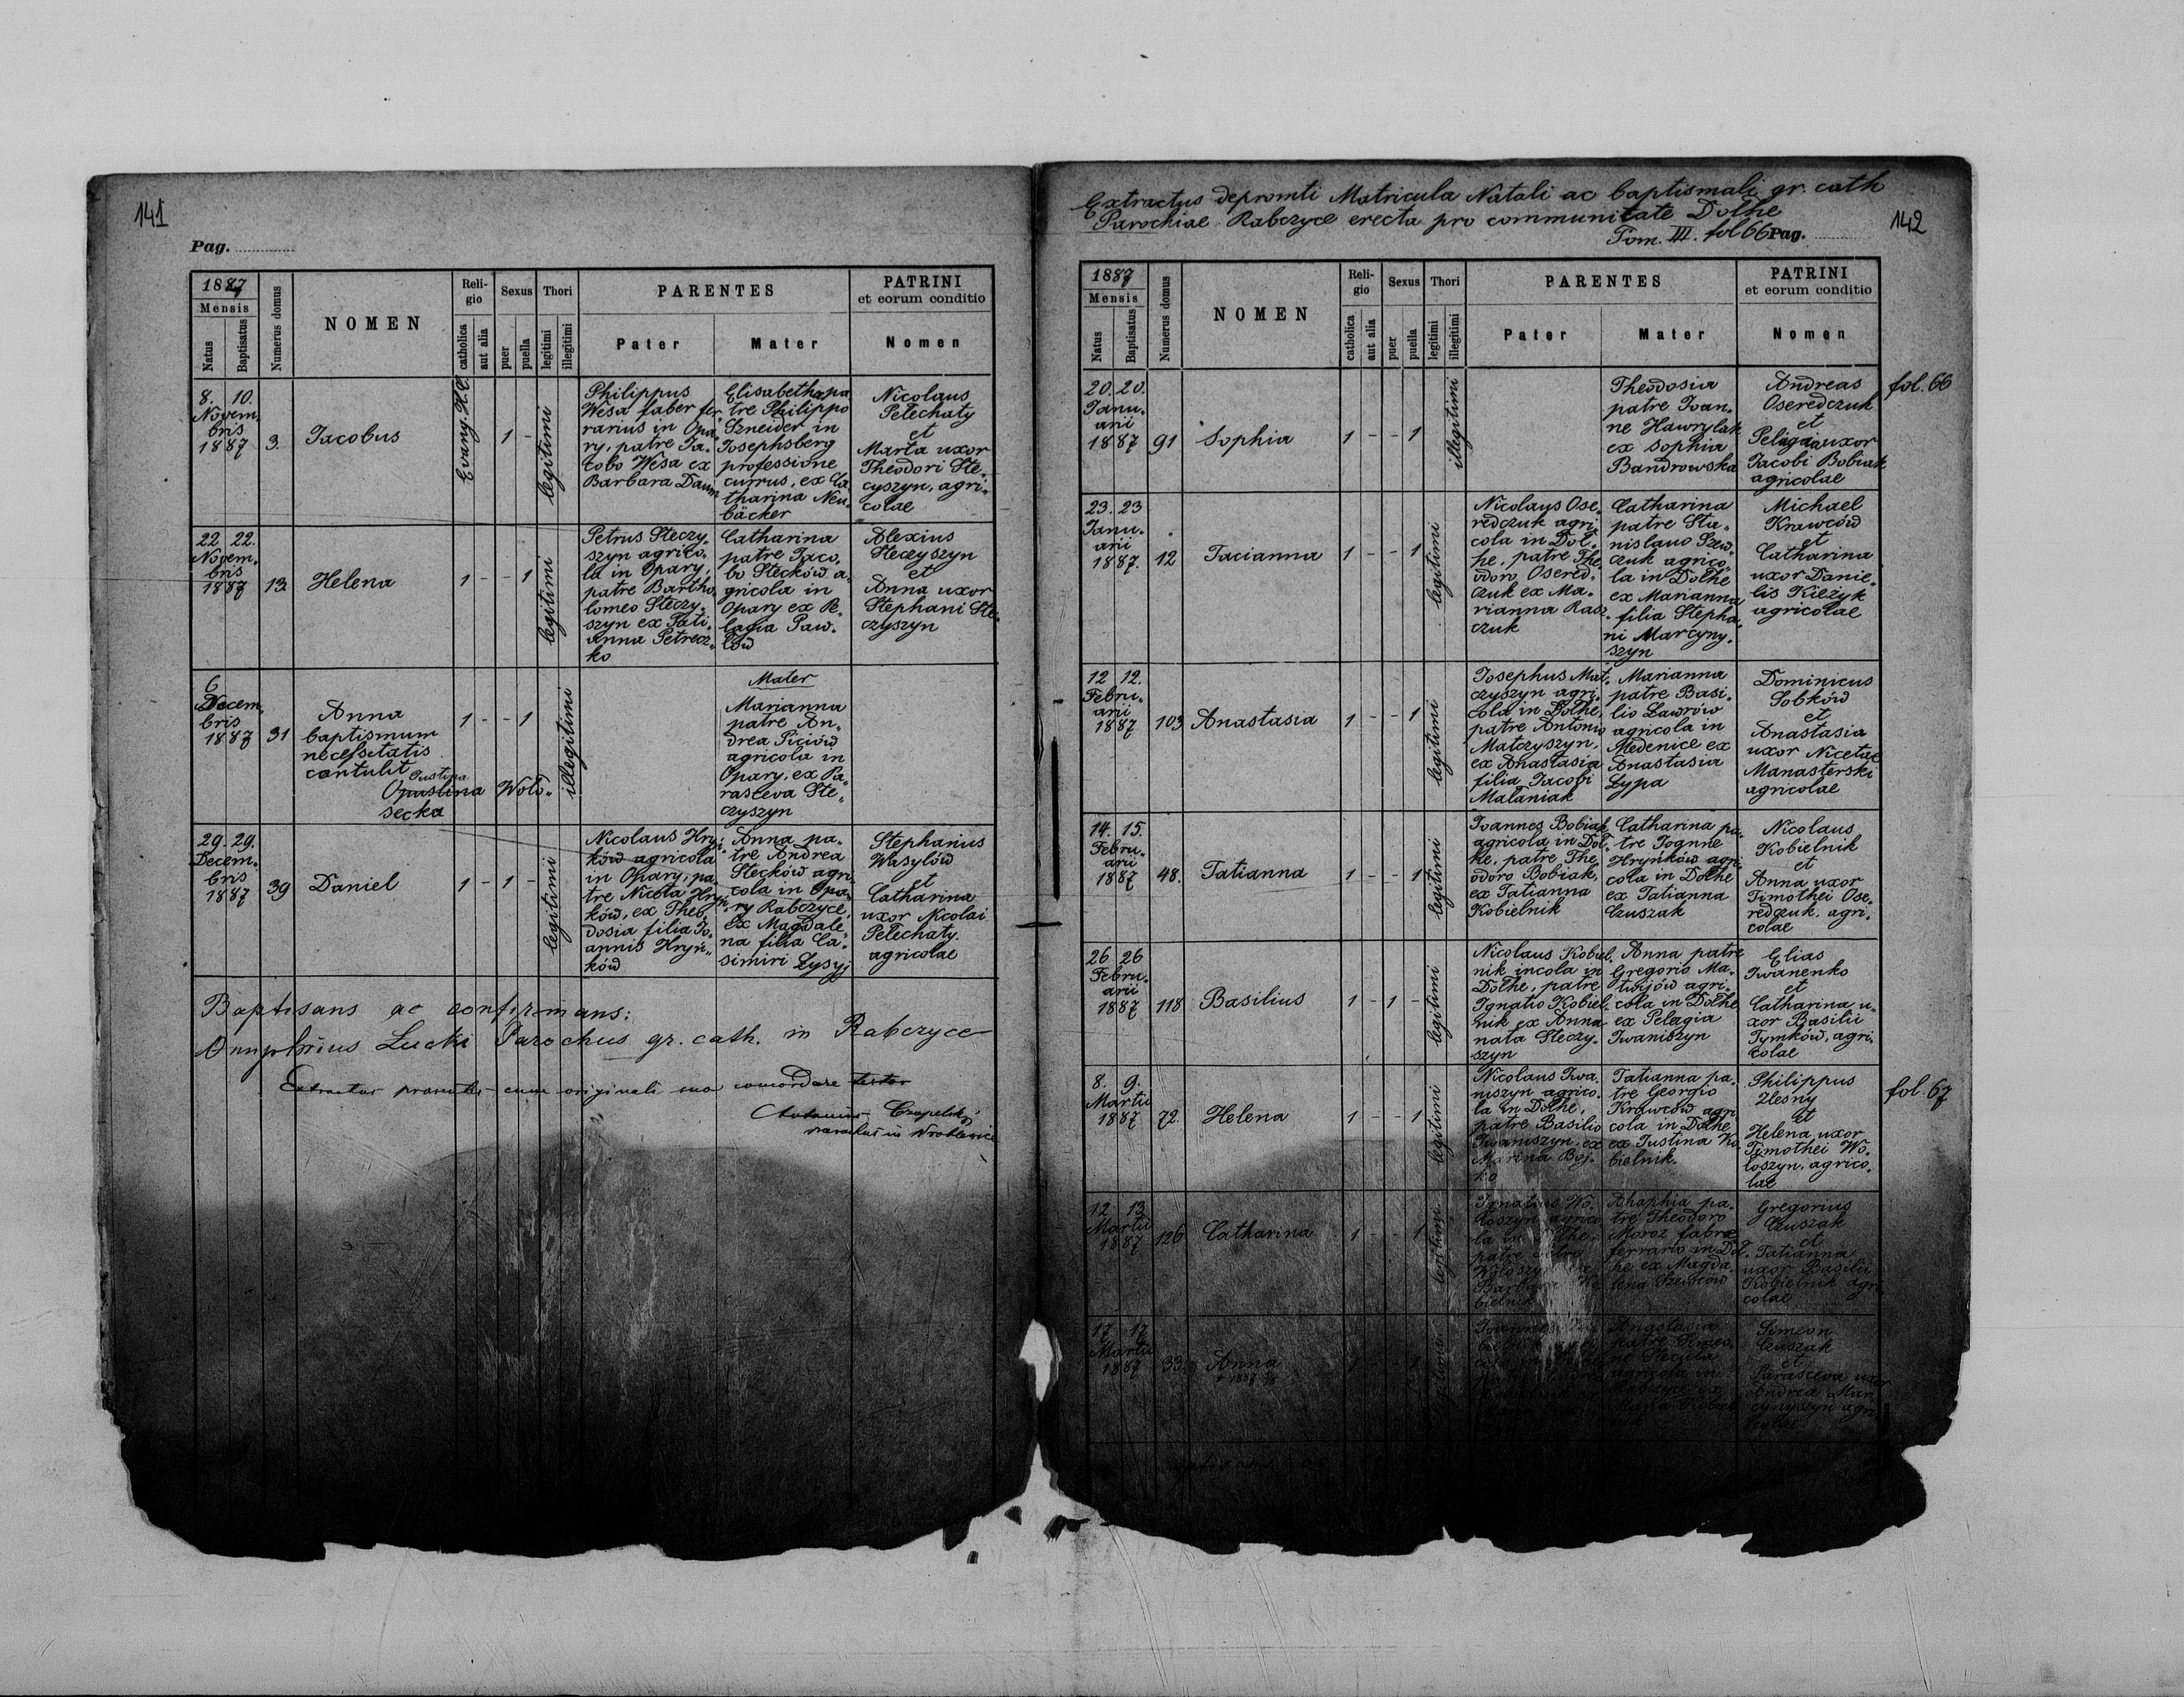 141
Pag.
1887
Mensis
Natus
Baptisatus
Numerus domus
NOMEN
Religio
catholica
aut alia
Sexus
puer
puella
Thori
legitimi
illegitimi
PARENTES
Pater
Mater
PATRINI
et eorum conditio
Nomen
8. 10.
Novem,
bris
1887
3.
Jacobus
Evang. H.C.
1 -
legitimi
Philippus
Wesa faber fer,
rarius in Opa,
ry, patre Ja,
cobo Wesa ex
Barbara Daum
Elisabetha pa
tre Philippo
Szneider in
Josephsberg
professione
currus, ex Ca
tharina Neu,
bäcker
Nicolaus
Pelechaty
et
Marta uxor
Theodori Ste,
cyszyn, agri,
colae
22. 22.
Novem,
bris
1887
13
Helena
1 - - 1
legitimi
Petrus Steczy,
szyn agrico,
la in Opary,
patre Bartho,
lomeo Steczy,
szyn ex Tati,
anna Petrecz,
ko
Catharina
patre Jaco,
bo Stecków a,
gricola in
Opary ex Pe,
lagia Paw,
lów
Alexius
Steczyszyn
et
Anna uxor
Stephani Ste,
czyszyn
6
Decem,
bris
1887
31
Anna
baptismum
necessitatis
contulit Justina
Opastina Woło,
secka
1 - - 1
illegitimi
Mater
Marianna
patre An,
drea Piciów
agricola in
Opary, ex Pa,
rasceva Ste,
czyszyn
29. 29.
Decem,
bris
1887
39
Daniel
1 - 1 -
legitimi
Nicolaus Hryń,
ków agricola
in Opary, pa,
tre Niceta Hryń,
ków, ex Theo,
dosia filia Jo,
annis Hryń,
ków
Anna pa,
tre Andrea
Stecków agri,
cola in Opa,
ry Rabczyce,
ex Magdale,
na filia Ca,
simiri Łysyj
Stephanus
Wasylów
et
Catharina
uxor Nicolai
Pelechaty
agricolae
Baptisans ac confirmans:
Onuphrius Lucki Parochus gr. cath. in Rabczyce
Extractus cum originali suo concordare testor
142
Extractus depromti Matricula Natali ac baptismali gr. cath
Parochiae Rabczyce erecta pro communitate Dolhe
Tom. III. fol 66 Pag.
1887
Mensis
Natus
Baptisatus
Numerus domus
NOMEN
Religio
catholica
aut alia
Sexus
puer
puella
Thori
legitimi
illegitimi
PARENTES
Pater
Mater
PATRINI
et eorum conditio
Nomen
20. 20.
Janu,
arii
1887
91
Sophia
1 - - 1
illegitimi
Theodosia
patre Joan,
ne Hawrylak
ex Sophia
Bandrowska
Andreas
Oseredczuk
et
Pelagia uxor
Jacobi Bobiak
agricolae
fol. 66
23. 23
Janu,
arii
1887.
12
Tacianna
1 - - 1
legitimi
Nicolaus Ose,
redczuk agri,
cola in Dol,
he, patre The,
odoro Osered,
czuk ex Ma,
rianna Rasz,
czuk
Catharina
patre Sta,
nislauo Szew,
czuk agrico,
la in Dolhe
ex Marianna
filia Stepha,
ni Marcyny,
szyn
Michael
Krawców
et
Catharina
uxor Danie,
lis Kiezyk
agricolae
12 12.
Febru,
arii
1887
103
Anastasia
1 - - 1
legitimi
Josephus Mat,
czyszyn agri,
cola in Dolhe,
patre Antonio
Matczyszyn,
ex Anastasia
filia Jacobi
Malaniak
Marianna
patre Basi,
lio Ławrów
agricola in
Medenice ex
Anastasia
Lypa
Dominicus
Sobków
et
Anastasia
uxor Nicetae
Manasterski
agricolae
14. 15.
Febru,
arii
1887
48.
Tatianna
1 - - 1
legitimi
Joannes Bobiak
agricola in Dol,
he, patre The,
odoro Bobiak,
ex Tatianna
Kobielnik
Catharina pa,
tre Joanne
Hryńków agri,
cola in Dolhe
ex Tatianna
Czuszak
Nicolaus
Kobielnik
et
Anna uxor
Timothei Ose,
redczuk, agri,
colae
26 26
Febru,
arii
1887
118
Basilius
1 - 1 -
legitimi
Nicolaus Kobiel,
nik incola in
Dolhe, patre
Ignatio Kobiel,
nik ex Anna
nata Steczy,
szyn
Anna patre
Gregorio Ma,
twjów agri,
cola in Dolhe
ex Pelagia
Iwaniszyn
Elias
Iwanenko
et
Catharina u,
xor Basilii
Tymków, agri,
colae
8. 9.
Martii
1887
72.
Helena
1 - - 1
legitimi
Nicolaus Iwa,
niszyn agrico,
la in Dolhe,
patre Basilio
Iwaniszyn, ex
Marina Boj,
ko
Tatianna pa,
tre Georgio
Krawców agri,
cola in Dolhe
ex Justina Ko,
bielnik.
Philippus
Zlesny
et
Helena uxor
Timothei Wo,
łoszyn, agrico,
lae
fol. 67
12 13
Martii
1887
126
Catharina
1 - - 1
legitimi
Ignatius Wo,
łoszyn agrico,
la in Dolhe,
patre
Wołoszyn ex
Barbara
bielnik
Ahaphia pa,
tre Theodoro
Moroz fabro
ferrario in Dol,
he ex Magda,
lena Szewców
Gregorius
Czuszak
et
Tatianna
uxor Basilii
Kobielnik agri,
colae
17 17
Martii
1887
33.
Anna
Joannes
Anastasia
patre
agricola in
Simeon
Czuszak
et
Parasceva uxor
Andrea Mar,
cynyszyn agri,
colae